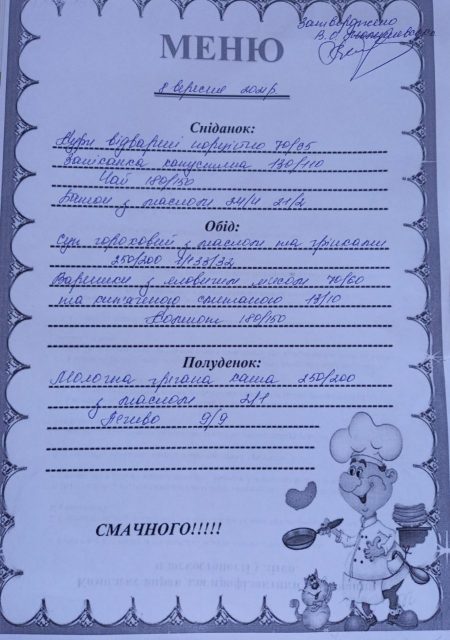 Затверджено
В.О.
МЕНЮ
8 вересня
Сніданок:
Кури відварні порційно 70/65
Запіканка капустяна 130/110
Чай 180/150
Батон з маслом 24/4 21/2
Обід:
Суп гороховий з маслом та грінками
250/200 1/433/32
Вареники з яловичим м'ясом 70/60
та кип'яченою сметаною 13/10
Компот 180/150
Полуденок:
Молочна каша 250/200
з маслом 2/1
Печиво 9/9
СМАЧНОГО!!!!!